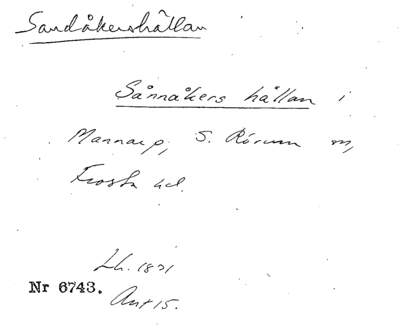 Sandåkershällan
Sånnåkers hällan i
Mannarp, S. Rörum sn,
Frosta hd.
Lh. 1821
Nr 6743.
Ant 15.